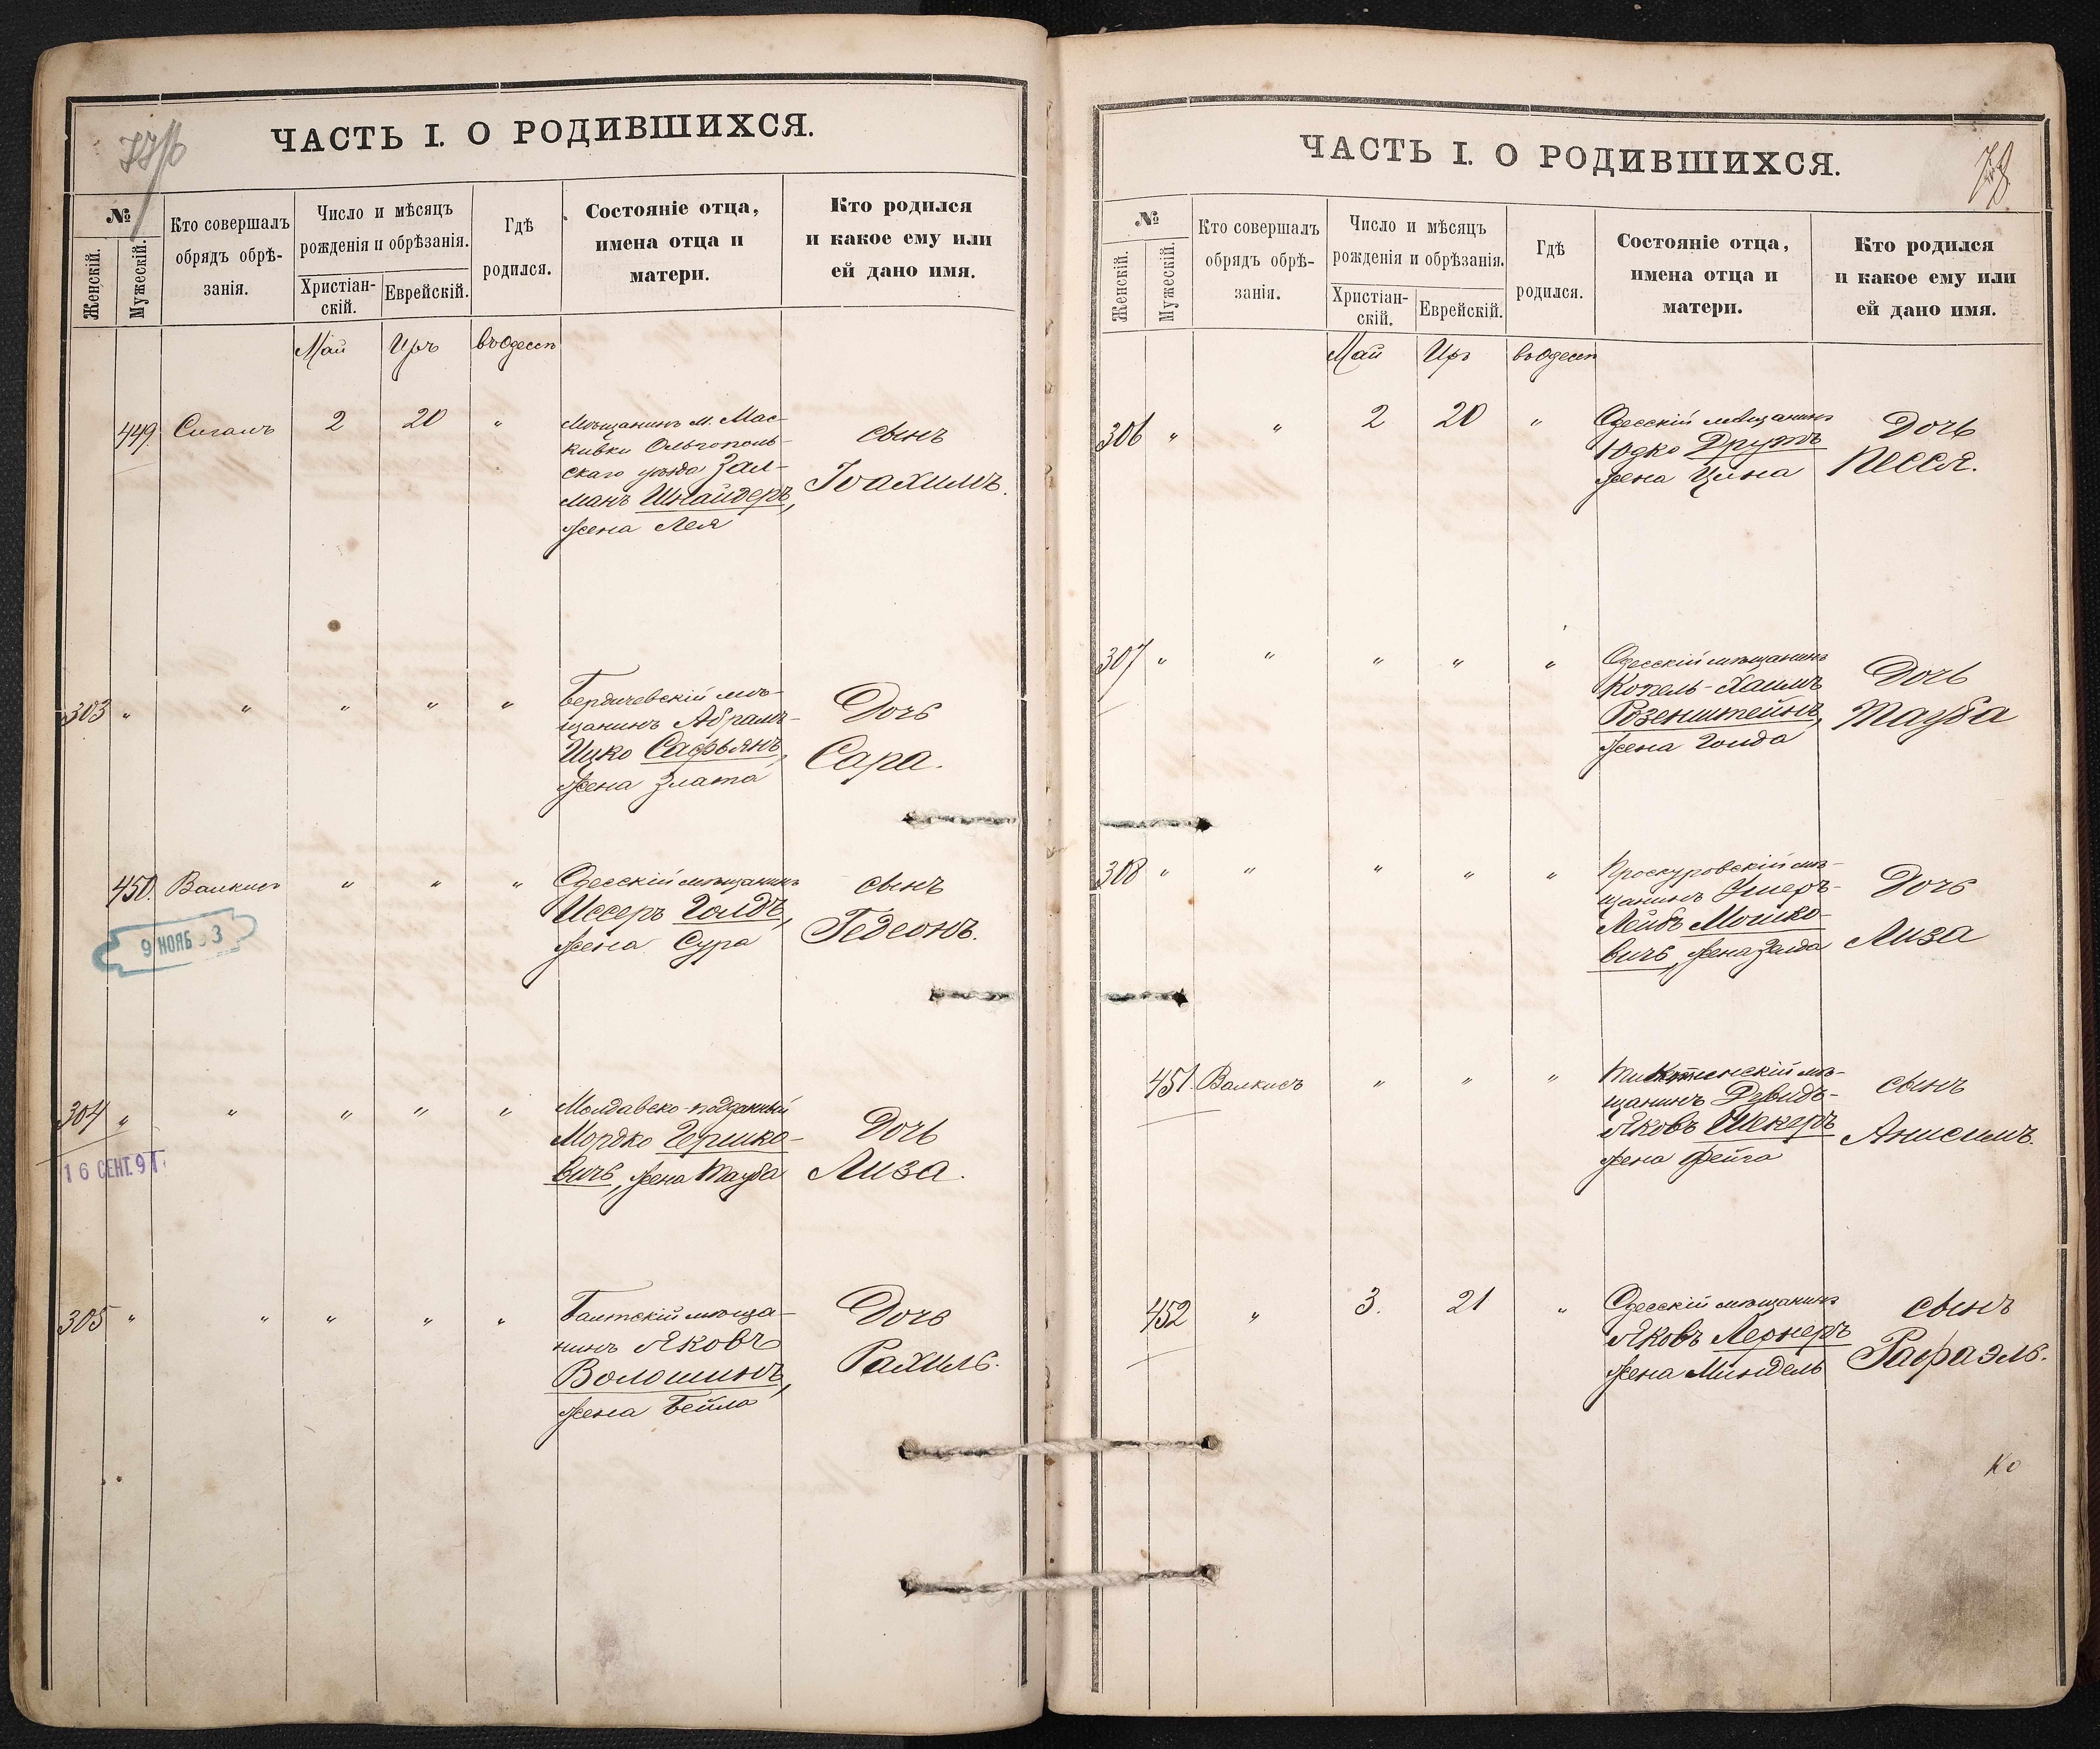 77/б
ЧАСТЬ I. О РОДИВШИХСЯ.
№
Женскій.
Мужескій.
Кто совершалъ
обрядъ обрѣ-
занія.
Число и мѣсяцъ
рожденія и обрѣзанія.
Христіан-
скій.
Еврейскій.
Гдѣ
родился.
Состояніе отца,
имена отца и
матери.
Кто родился
и какое ему или
ей дано имя.
Май Иръ въ Одессѣ
449. Сигалъ 2 20 "
Мѣщанинъ м. Мас-
кивки Ольгополь-
скаго уѣзда Зал-
манъ Шнайдеръ,
жена Лея
сынъ
Іоахимъ.
303 " " " " "
Бердичевскій мѣ-
щанинъ Абрамъ-
Ицко Сафьянъ,
жена Злата
Дочь
Сара.
450. Валкисъ " " "
Одесскій мѣщанинъ
Иссеръ Голдъ,
жена Сура
сынъ
Гедеонъ.
9 НОЯБ 3
304 " " " " "
Молдавско-подданный
Мордко Гершко-
вичъ, жена Тауба
Дочь
Лиза.
16 СЕНТ. 91
305 " " " " "
Балтскій мѣща-
нинъ Яковъ
Волошинъ,
жена Бейла
Дочь
Рахиль.
78
ЧАСТЬ I. О РОДИВШИХСЯ.
№
Женскій.
Мужескій.
Кто совершалъ
обрядъ обрѣ-
занія.
Число и мѣсяцъ
рожденія и обрѣзанія.
Христіан-
скій.
Еврейскій.
Гдѣ
родился.
Состояніе отца,
имена отца и
матери.
Кто родился
и какое ему или
ей дано имя.
Май Иръ въ Одессѣ
306 " " 2 20 "
Одесскій мѣщанинъ
Юдко Друтъ
жена Цина
Дочь
Песся.
307 " " " " "
Одесскій мѣщанинъ
Копель-Хаимъ
Розенштейнъ,
жена Голда
Дочь
Тауба
308 " " " " "
Проскуровскій мѣ-
щанинъ Ушеръ-
Лейбъ Мошко-
вичъ, жена Зелда
Дочь
Лиза
451. Валкисъ " " "
щанинъ Давидъ-
Яковъ Шекеръ
жена Фейга
сынъ
Анисимъ.
452 " 3. 21 "
Одесскій мѣщанинъ
Яковъ Лернеръ
жена Миндель
сынъ
Рафаэль.
Ко